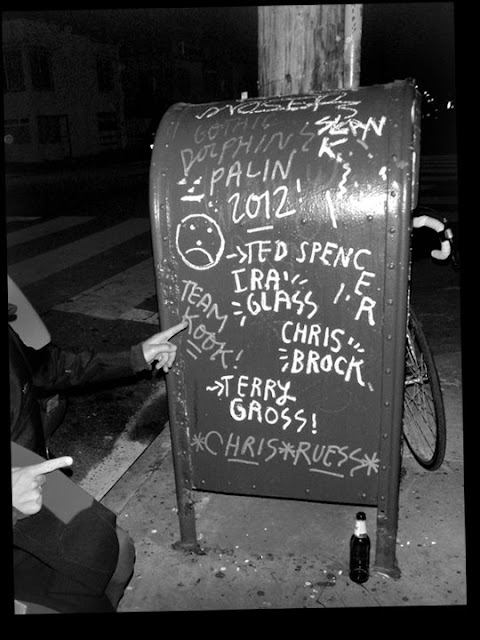 GOTHIC
DOLPHINS
SEAN
K.
PALIN
2012!
TED SPENCER
IRA
GLASS
TEAM
KOOK!
CHRIS
BROCK
TERRY
GROSS!
*CHRIS*RUESS*